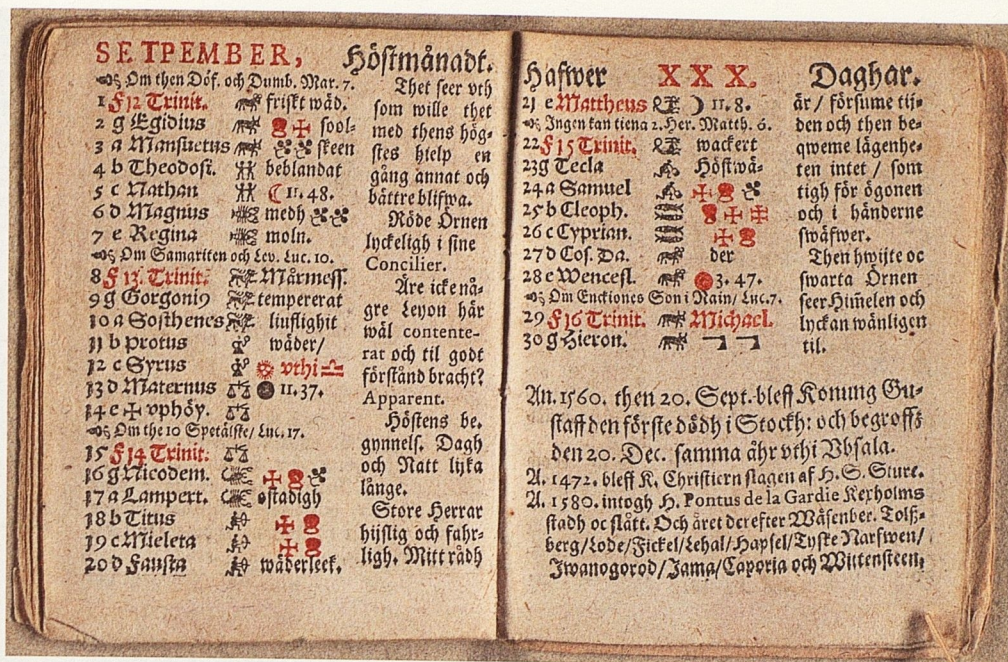 SETPEMBER, Höstmånadt.
Om then Döf. och Dumb. Mar. 7.
1 f 12 Trinit. friskt wäd.
2 g Egidius sool-
3 a Mansuetus skeen
4 b Theodosi. beblandat
5 c Nathan 11. 48.
6 d Magnus medh
7 e Regina moln.
Om Samariten och Lev. Luc. 10.
8 f 13. Trinit. Mårmess.
9 g Gorgoni9 tempererat
10 a Sosthenes liuflighit
11 b Protus wäder/
12 c Syrus vthi ♎
13 d Maternus 11. 37.
14 e ✠ vphöy.
Om the 10 Spetälske/ Luc. 17.
15 f 14 Trinit.
16 g Nicodem.
17 a Lampert. ostadigh
18 b Titus
19 c Mieleta
20 d Fausta wäderleek.
Thet seer vth
som wille thet
med thens hög-
stes hielp en
gång annat och
bättre blifwa.
Röde Örnen
lyckeligh i sine
Concilier.
Äre icke nå-
gre Leyon här
wäl contente-
rat och til godt
förstånd bracht?
Apparent.
Höstens be-
gynnels. Dagh
och Natt lijka
långe.
Store Herrar
hijslig och fahr-
ligh. Mitt rådh
Hafwer XXX. Daghar.
21 e Mattheus ☽ 11. 8.
Ingen kan tiena 2. Her. Matth. 6.
22 f 15 Trinit. wackert
23 g Tecla Höstwä-
24 a Samuel
25 b Cleoph.
26 c Cyprian.
27 d Cos. Da. der
28 e Wencesl. 3. 47.
Om Enckiones Son i Nain/ Luc. 7.
29 f 16 Trinit. Michael.
30 g Hieron.
är / försume tij-
den och then be-
qweme lägenhe-
ten intet / som
tigh för ögonen
och i händerne
swäfwer.
Then hwijte oc
swarta Örnen
seer Him̃elen och
lyckan wänligen
til.
An. 1560. then 20. Sept. bleff Konung Gu-
staff den förste dödh i Stockh: och begroffs
den 20. Dec. samma åhr vthi Vbsala.
A. 1472. bleff K. Christiern slagen af H. S. Sture.
A. 1580. intogh H. Pontus de la Gardie Kexholms
stadh oc slått. Och året derefter Wäsenber. Tolß-
berg/Lode/Fickel/Lehal/Hapsel/Tyske Narfwen/
Iwanogorod/Jama/Caporia och Wittensteen.